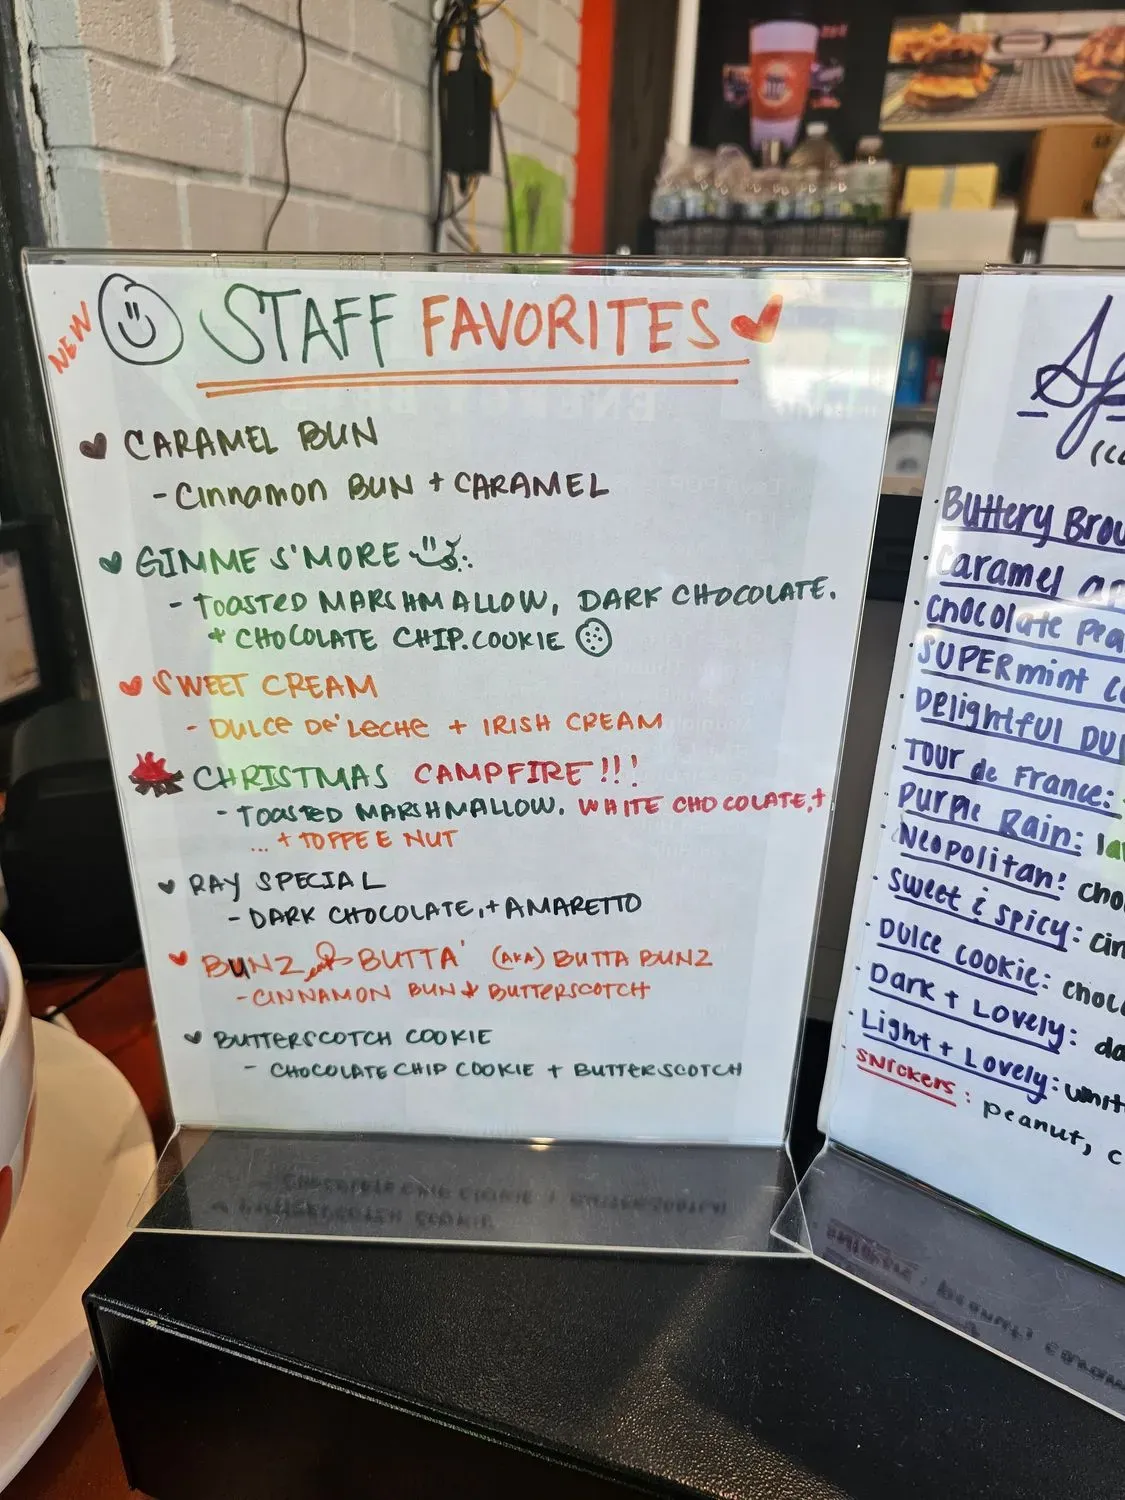 NEW
STAFF FAVORITES
CARAMEL BUN
- Cinnamon BUN + CARAMEL
GIMME S'MORE
- TOASTED MARSHMALLOW, DARK CHOCOLATE.
+ CHOCOLATE CHIP.COOKIE
SWEET CREAM
- DULCE DE' LECHE + IRISH CREAM
CHRISTMAS CAMPFIRE!!!
- TOASTED MARSHMALLOW. WHITE CHOCOLATE,+
... + TOFFEE NUT
RAY SPECIAL
- DARK CHOCOLATE,+ AMARETTO
BUNZ BUTTA' (AKA) BUTTA BUNZ
- CINNAMON BUN + BUTTERSCOTCH
BUTTERSCOTCH COOKIE
- CHOCOLATE CHIP COOKIE + BUTTERSCOTCH
Buttery
Caramel
Chocolate
SUPERmint
Delightful
Tour de France:
Purple Rain:
Neopolitan:
Sweet & Spicy:
Dulce cookie:
Dark + Lovely:
Light + Lovely:
SNICKERS: peanut,